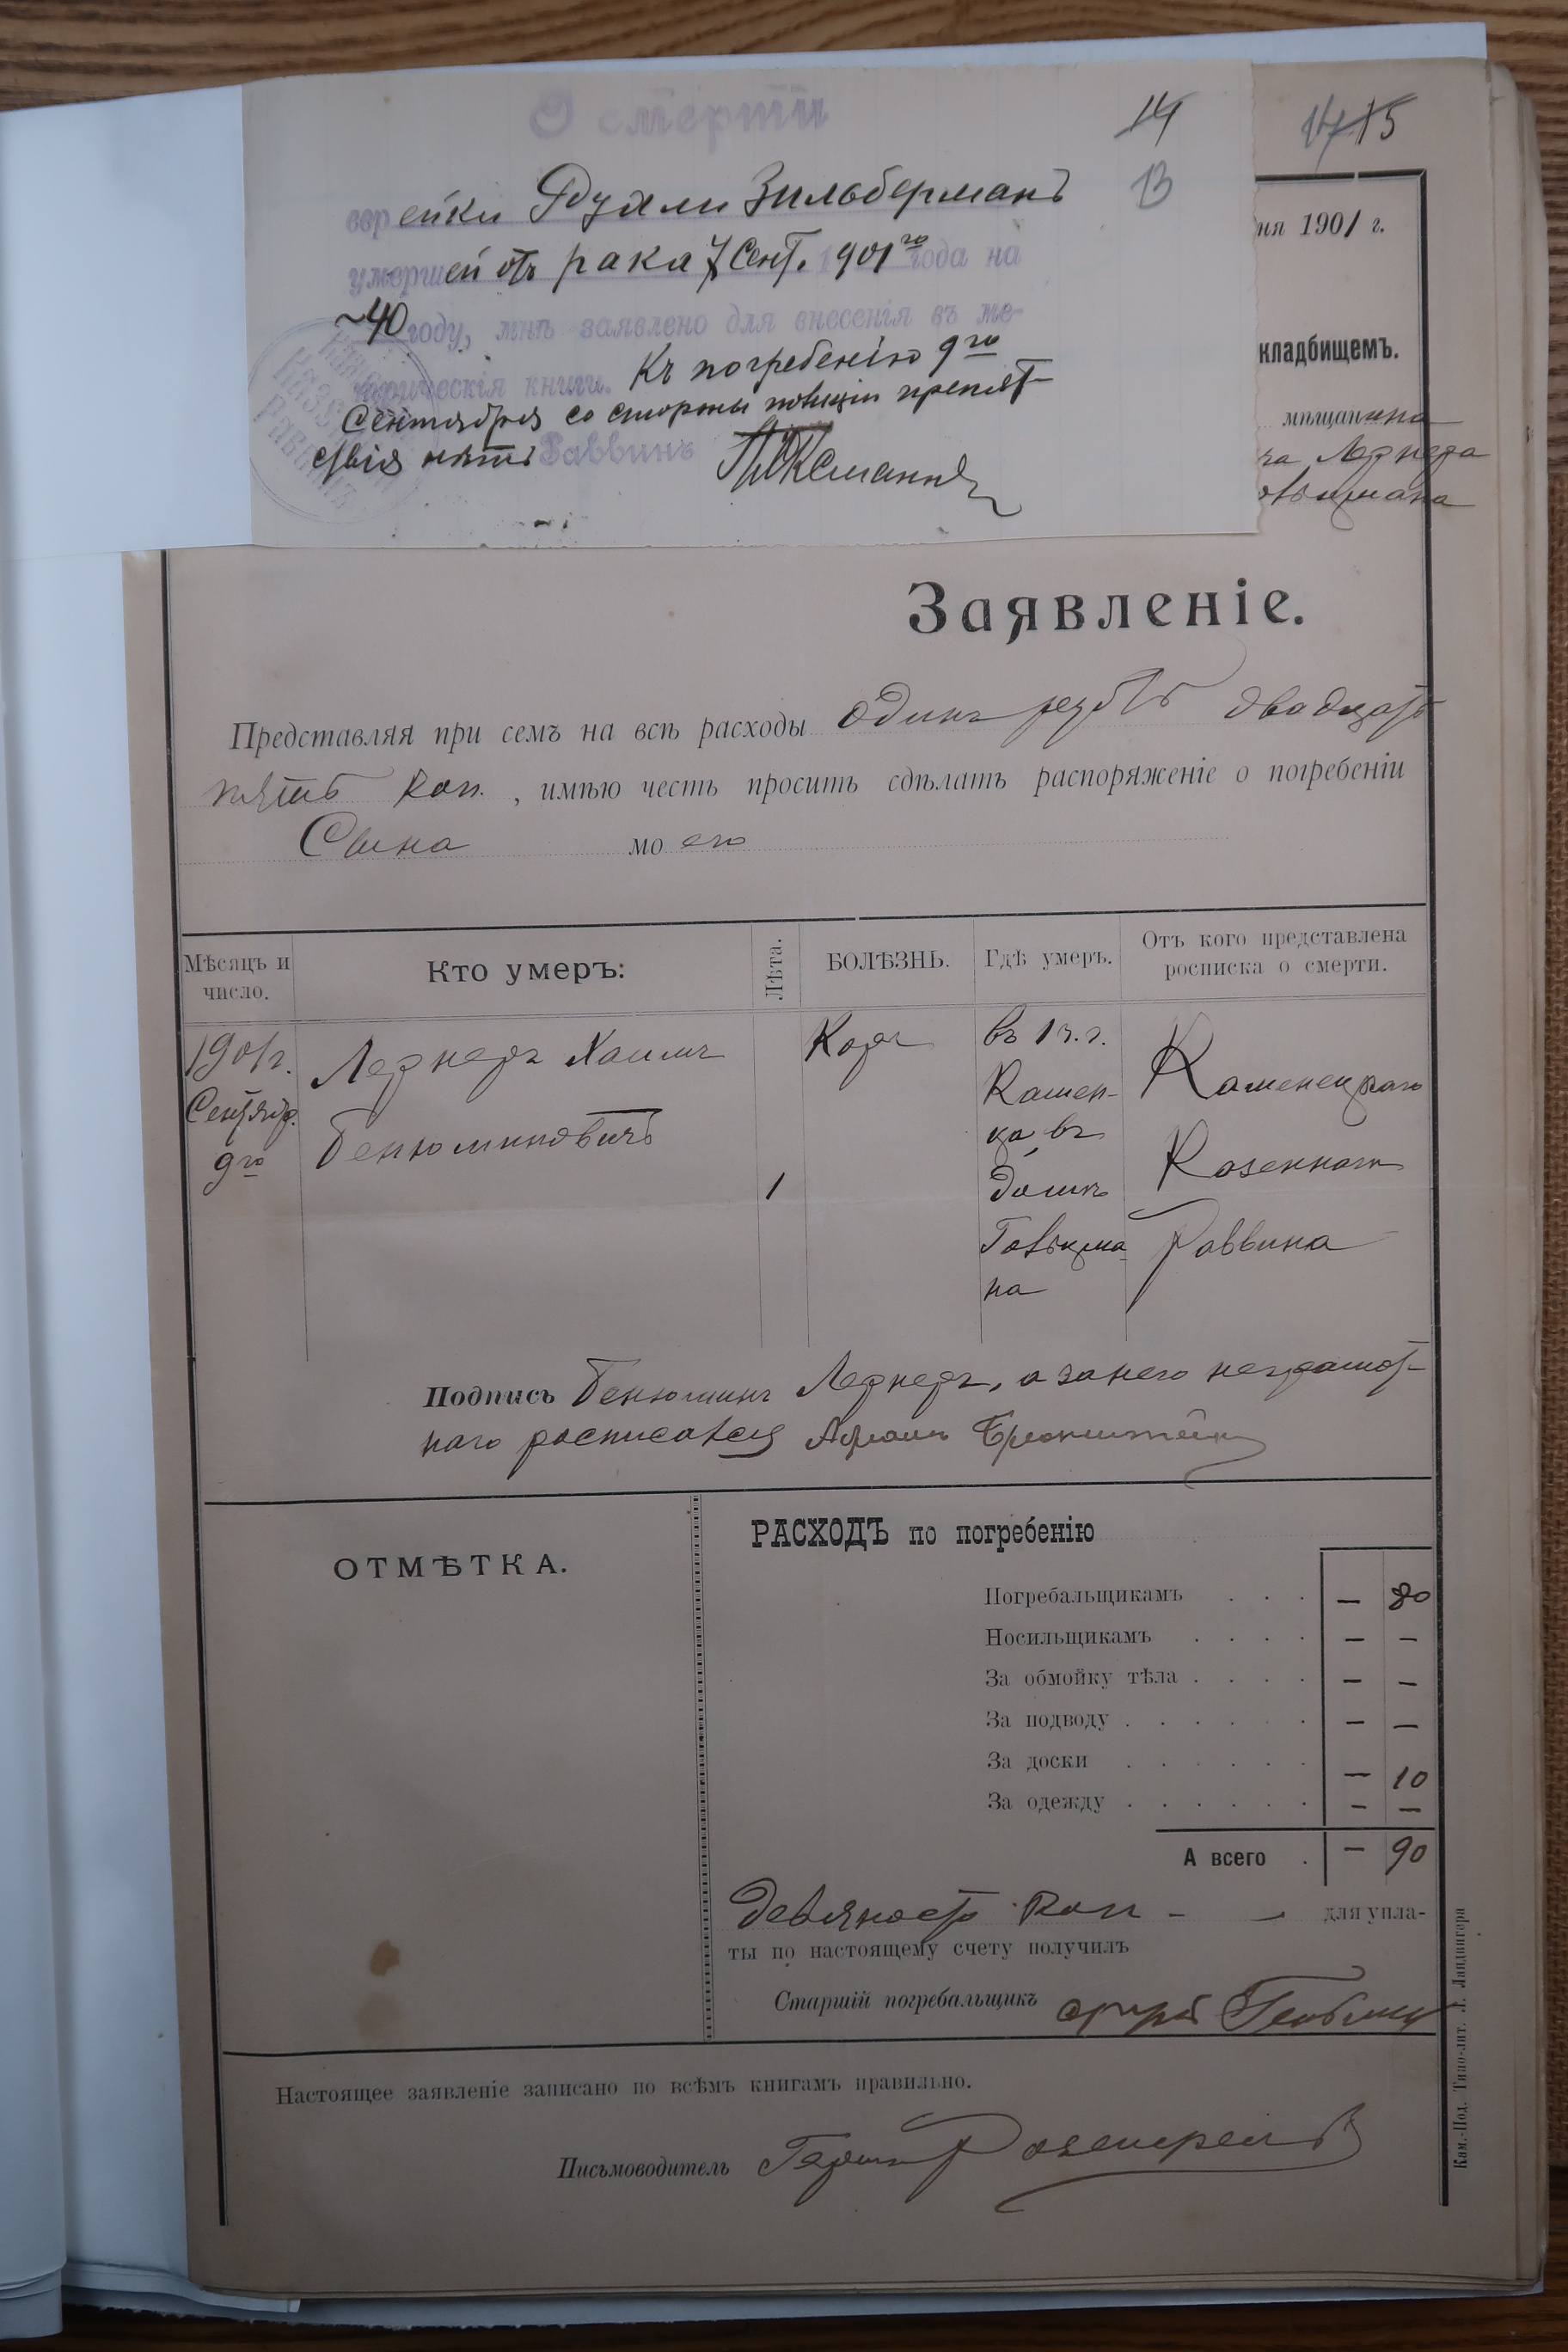 О смерти
14
1715
13
еврейки Рухли Зильберманъ
умершей отъ рака 7 Сент. 1901го года на
~40 году, мнѣ заявлено для внесенія въ ме-
трическія книги. Къ погребенію 9го
Сентября со стороны полиціи препят-
ствія нѣтъ Раввинъ
КАЗЕН
РАВВИНЪ
ня 1901 г.
кладбищемъ.
мѣщанина
ча Лернера
Заявленіе.
Представляя при семъ на всѣ расходы Одинъ рубль двадцать
пять коп., имѣю честь просить сдѣлать распоряженіе о погребеніи
Сына моего
Мѣсяцъ и число.
Кто умеръ:
Лѣта.
БОЛѢЗНЬ.
Гдѣ умеръ.
Отъ кого представлена росписка о смерти.
1901г.
Сентябр.
9го
Лернеръ Хаимъ
Бенюминовичъ
1
Корь
въ 1 ч. г.
Камен-
ца въ
домѣ
Говцма-
на
Каменецкаго
Казеннаго
Раввина
Подпись Бенюминъ Лернеръ, а за него неграмот-
наго росписался Абрамъ Бронштейнъ
ОТМѢТКА.
РАСХОДЪ по погребенію
Погребальщикамъ . . . — 80
Носильщикамъ . . . . — —
За обмойку тѣла . . . . — —
За подводу . . . . . . — —
За доски . . . . . . — 10
За одежду . . . . . . — —
А всего . — 90
Девяносто коп — — для упла-
ты по настоящему счету получилъ
Старшій погребальщикъ
Настоящее заявленіе записано по всѣмъ книгамъ правильно.
Письмоводитель Герш Розенкранцъ
Кам.-Под. Типо-лит. Л. Ландвигера